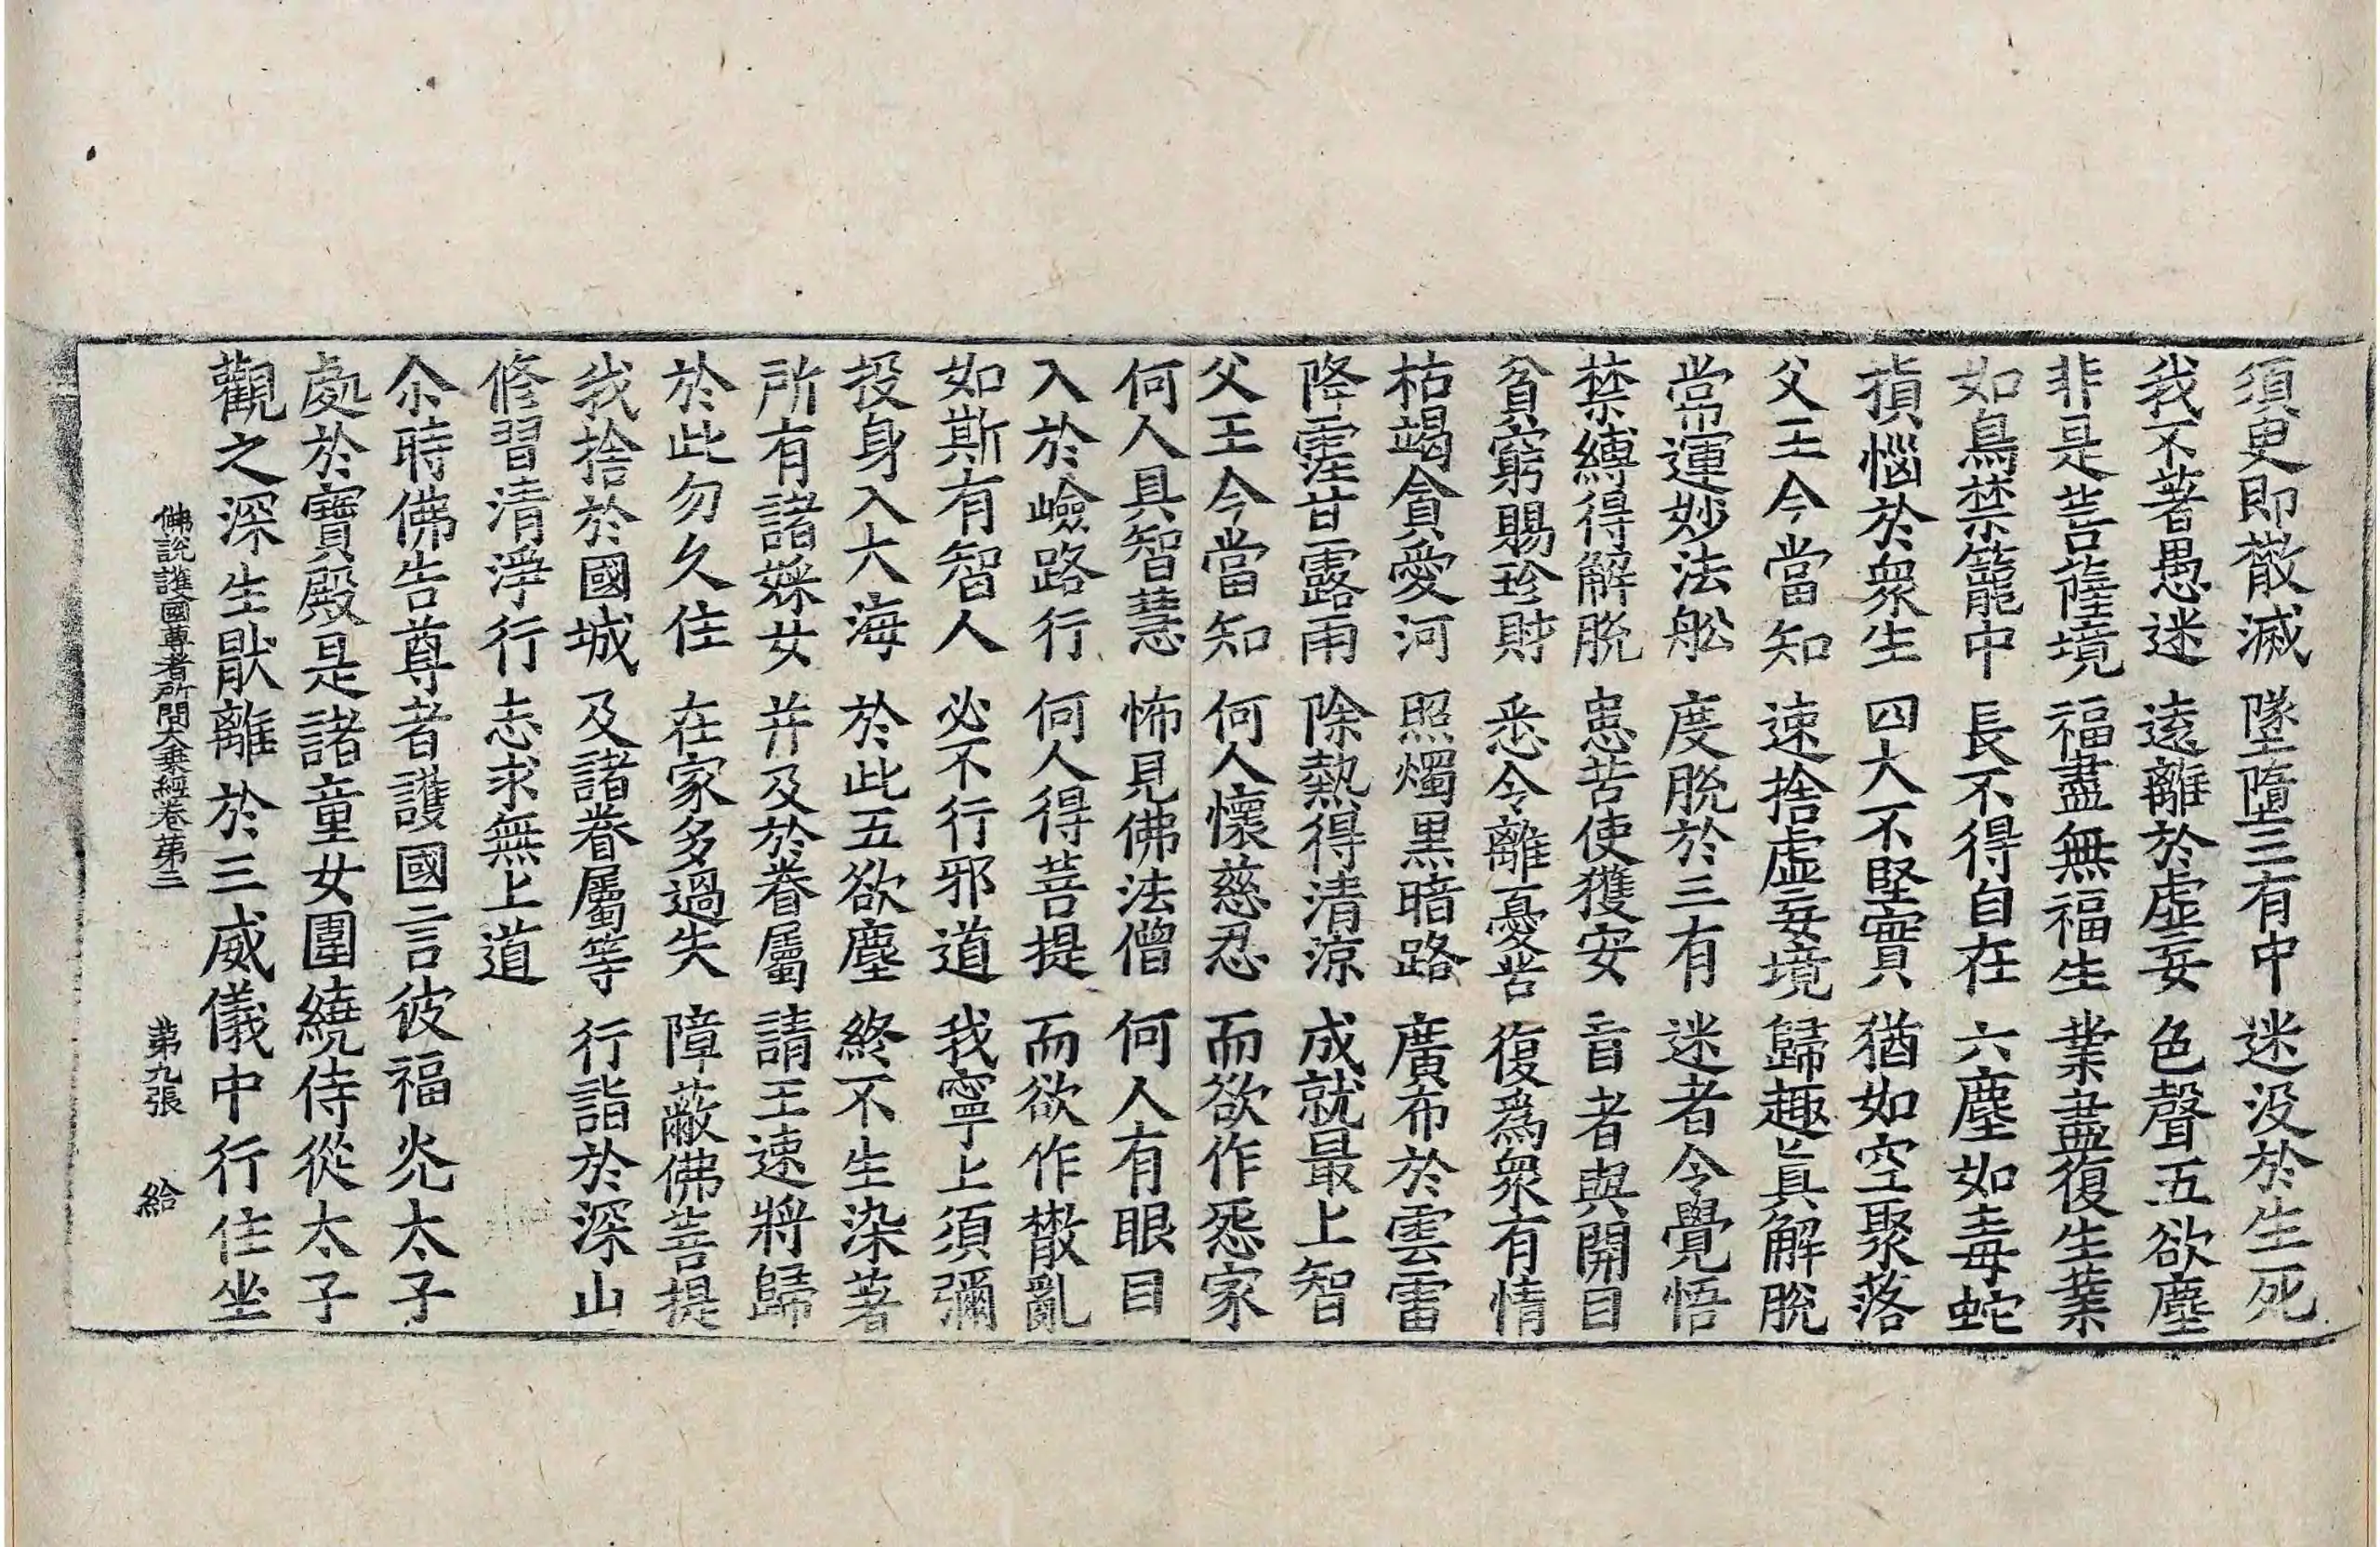 須臾即散滅 墜墮三有中 迷没於生死
我不著愚迷 遠離於虛妄 色聲五欲塵
非是菩薩境 福盡無福生 業盡復生業
如鳥禁籠中 長不得自在 六塵如毒蛇
損惱於衆生 四大不堅實 猶如空聚落
父王今當知 速捨虛妄境 歸趣眞解脫
常運妙法舩 度脫於三有 迷者令覺悟
禁縛得解脫 患苦使獲安 盲者與開目
貧窮賜珍財 悉令離憂苦 復爲衆有情
枯竭貪愛河 照燭黒暗路 廣布於雲雷
降霔甘露雨 除熱得清涼 成就最上智
父王今當知 何人懷慈忍 而欲作怨家
何人具智慧 怖見佛法僧 何人有眼目
入於嶮路行 何人得菩提 而欲作散亂
如斯有智人 必不行邪道 我寧上須彌
投身入大海 於此五欲塵 終不生染著
所有諸婇女 并及於眷屬 請王速將歸
於此勿久住 在家多過失 障蔽佛菩提
我捨於國城 及諸眷屬等 行詣於深山
修習清淨行 志求無上道
尒時佛告尊者護國言彼福光太子
處於寶殿是諸童女圍繞侍從太子
觀之深生猒離於三威儀中行住坐
佛說護國尊者所問大乘經卷第三 第九張 給